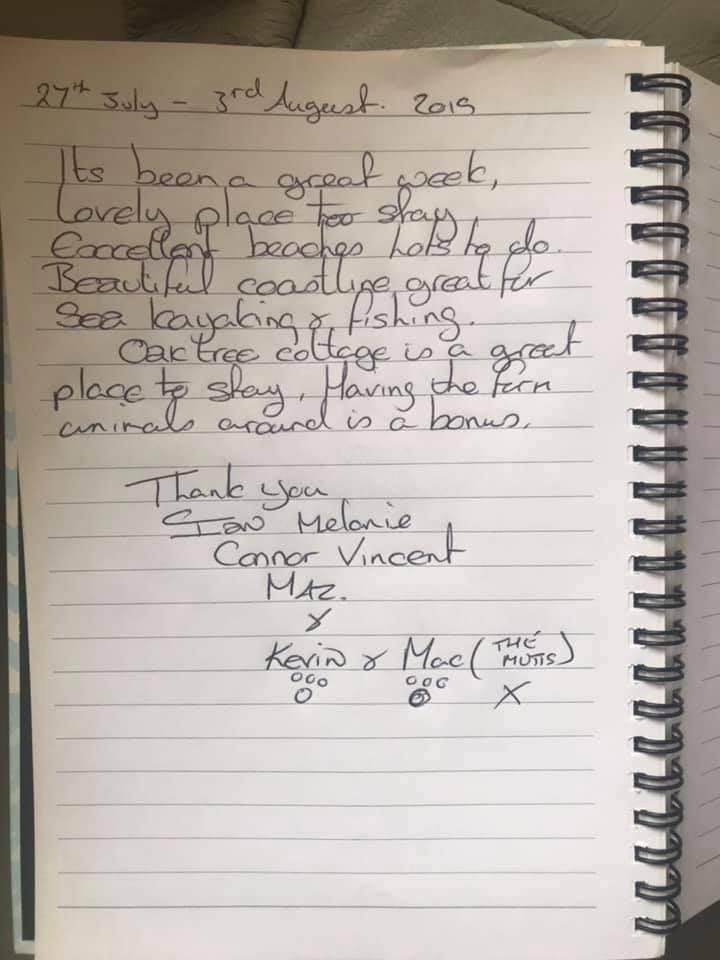 27th July - 3rd August. 2019
Its been a great week,
Lovely place too stay
Excellent beaches lots to do.
Beautiful coastline great for
Sea kayaking & fishing.
Oaktree cottage is a great
place to stay. Having the farm
animals around is a bonus.
Thank you
Ian Melanie
Connor Vincent
MAZ.
&
Kevin & Mac (THE MUTTS)
X